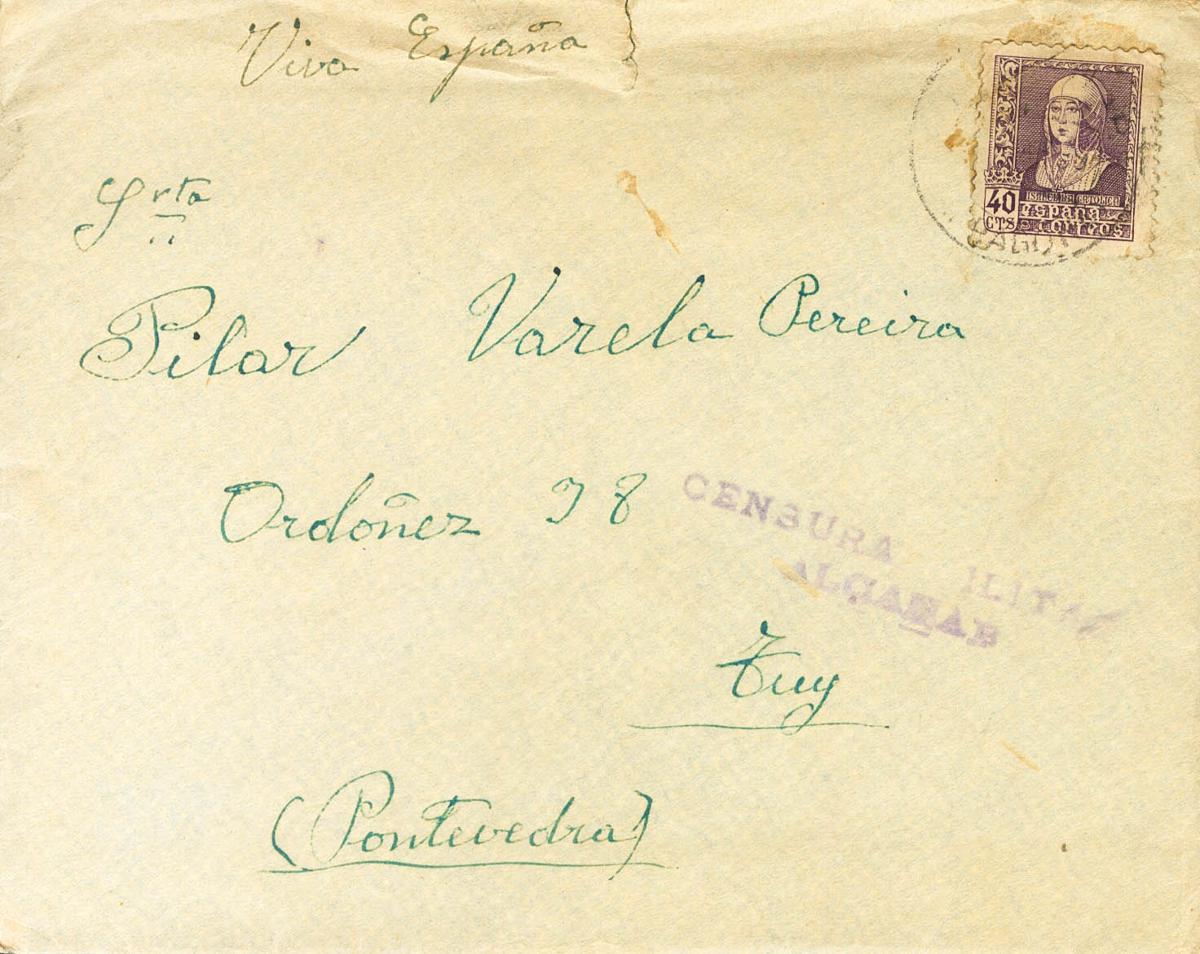 Viva España
Srta
Pilar Varela Pereira
Ordoñez 98
Tuy
(Pontevedra)
ISABEL LA CATOLICA
40
CTS
España
correos
CENSURA ILITAR
ALCAZAR